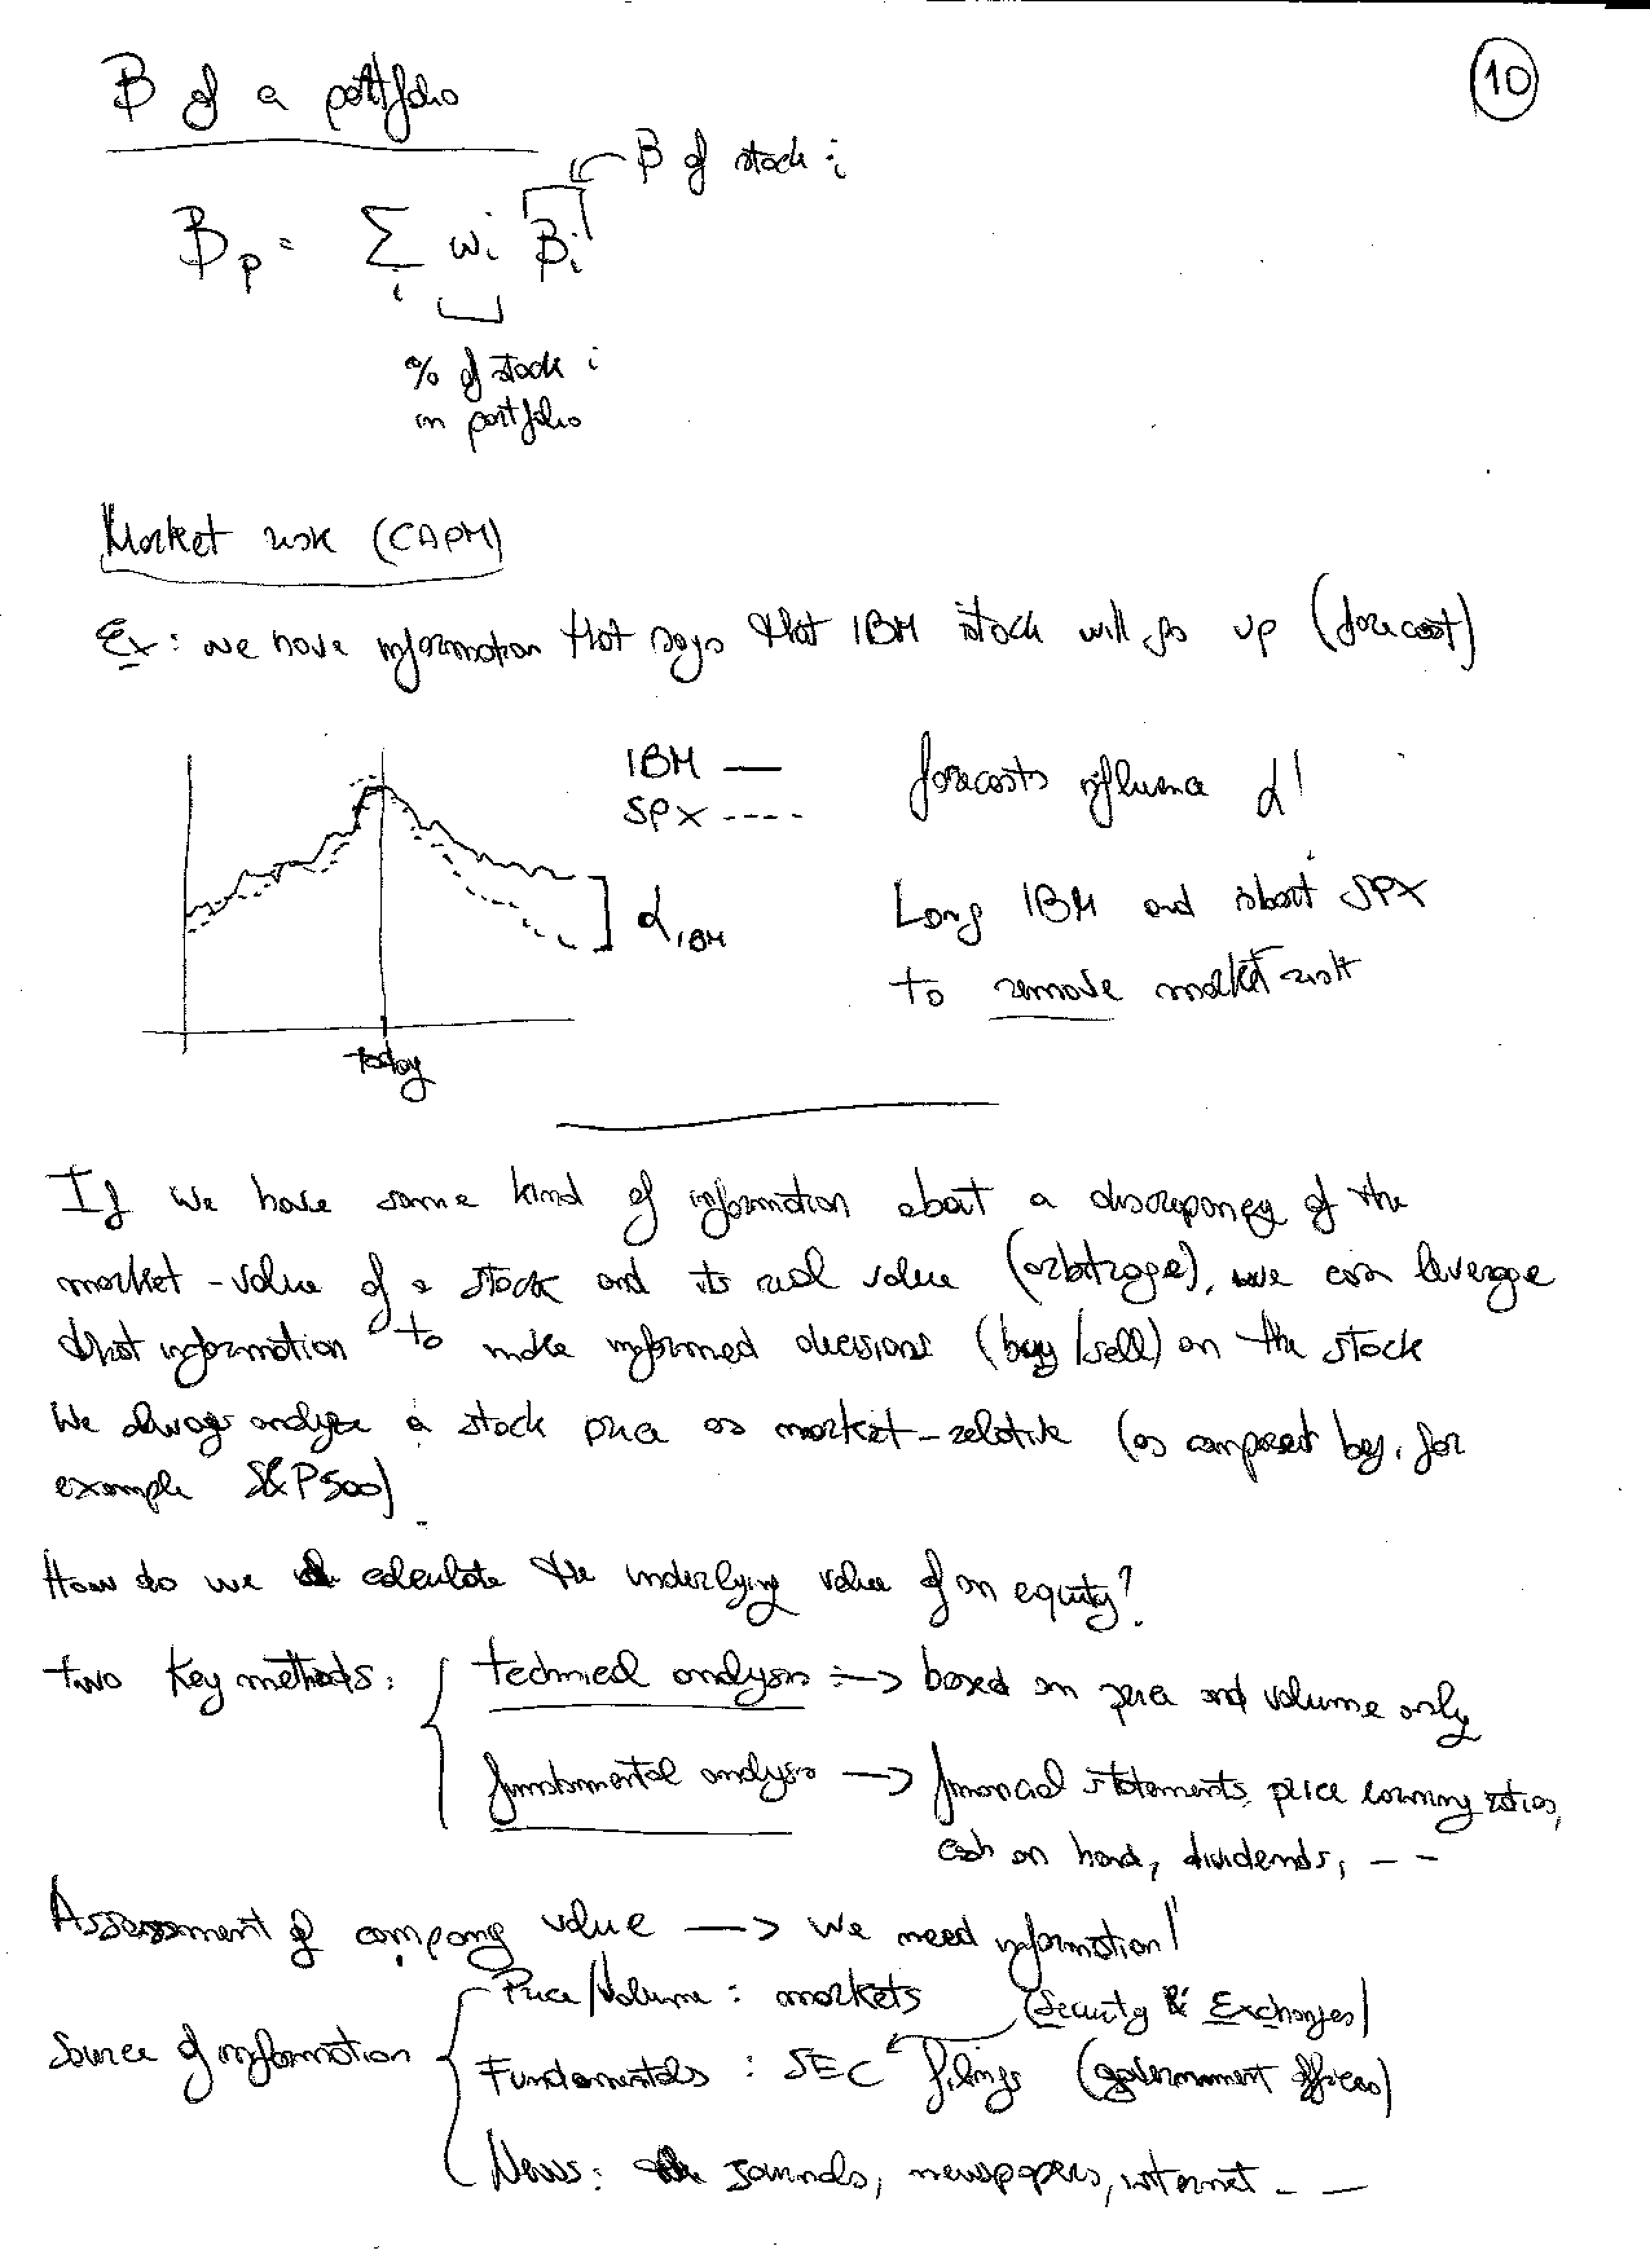 β of a portfolio
10
β of stock i
βp = Σ wi βi
i
% of stock i
in portfolio
Market risk (CAPM)
Ex: we have information that says that IBM stock will go up (forecast)
IBM —
SPX ----
forecasts influence α!
αIBM
Long IBM and short SPX
to remove market risk
today
If we have some kind of information about a discrepancy of the
market-value of a stock and its real value (arbitrage), we can leverage
that information to make informed decisions (buy/sell) on the stock
We always analyze a stock price as market-relative (as compared by, for
example S&P500)
How do we calculate the underlying value of an equity?
two key methods:
technical analysis :-> based on price and volume only
fundamental analysis -> financial statements, price earning ratios,
cash on hand, dividends, --
Assessment of company value -> we need information!
Source of information
Price/Volume: markets
(Security & Exchanges)
Fundamentals: SEC filings (government offices)
News: journals, newspapers, internet --